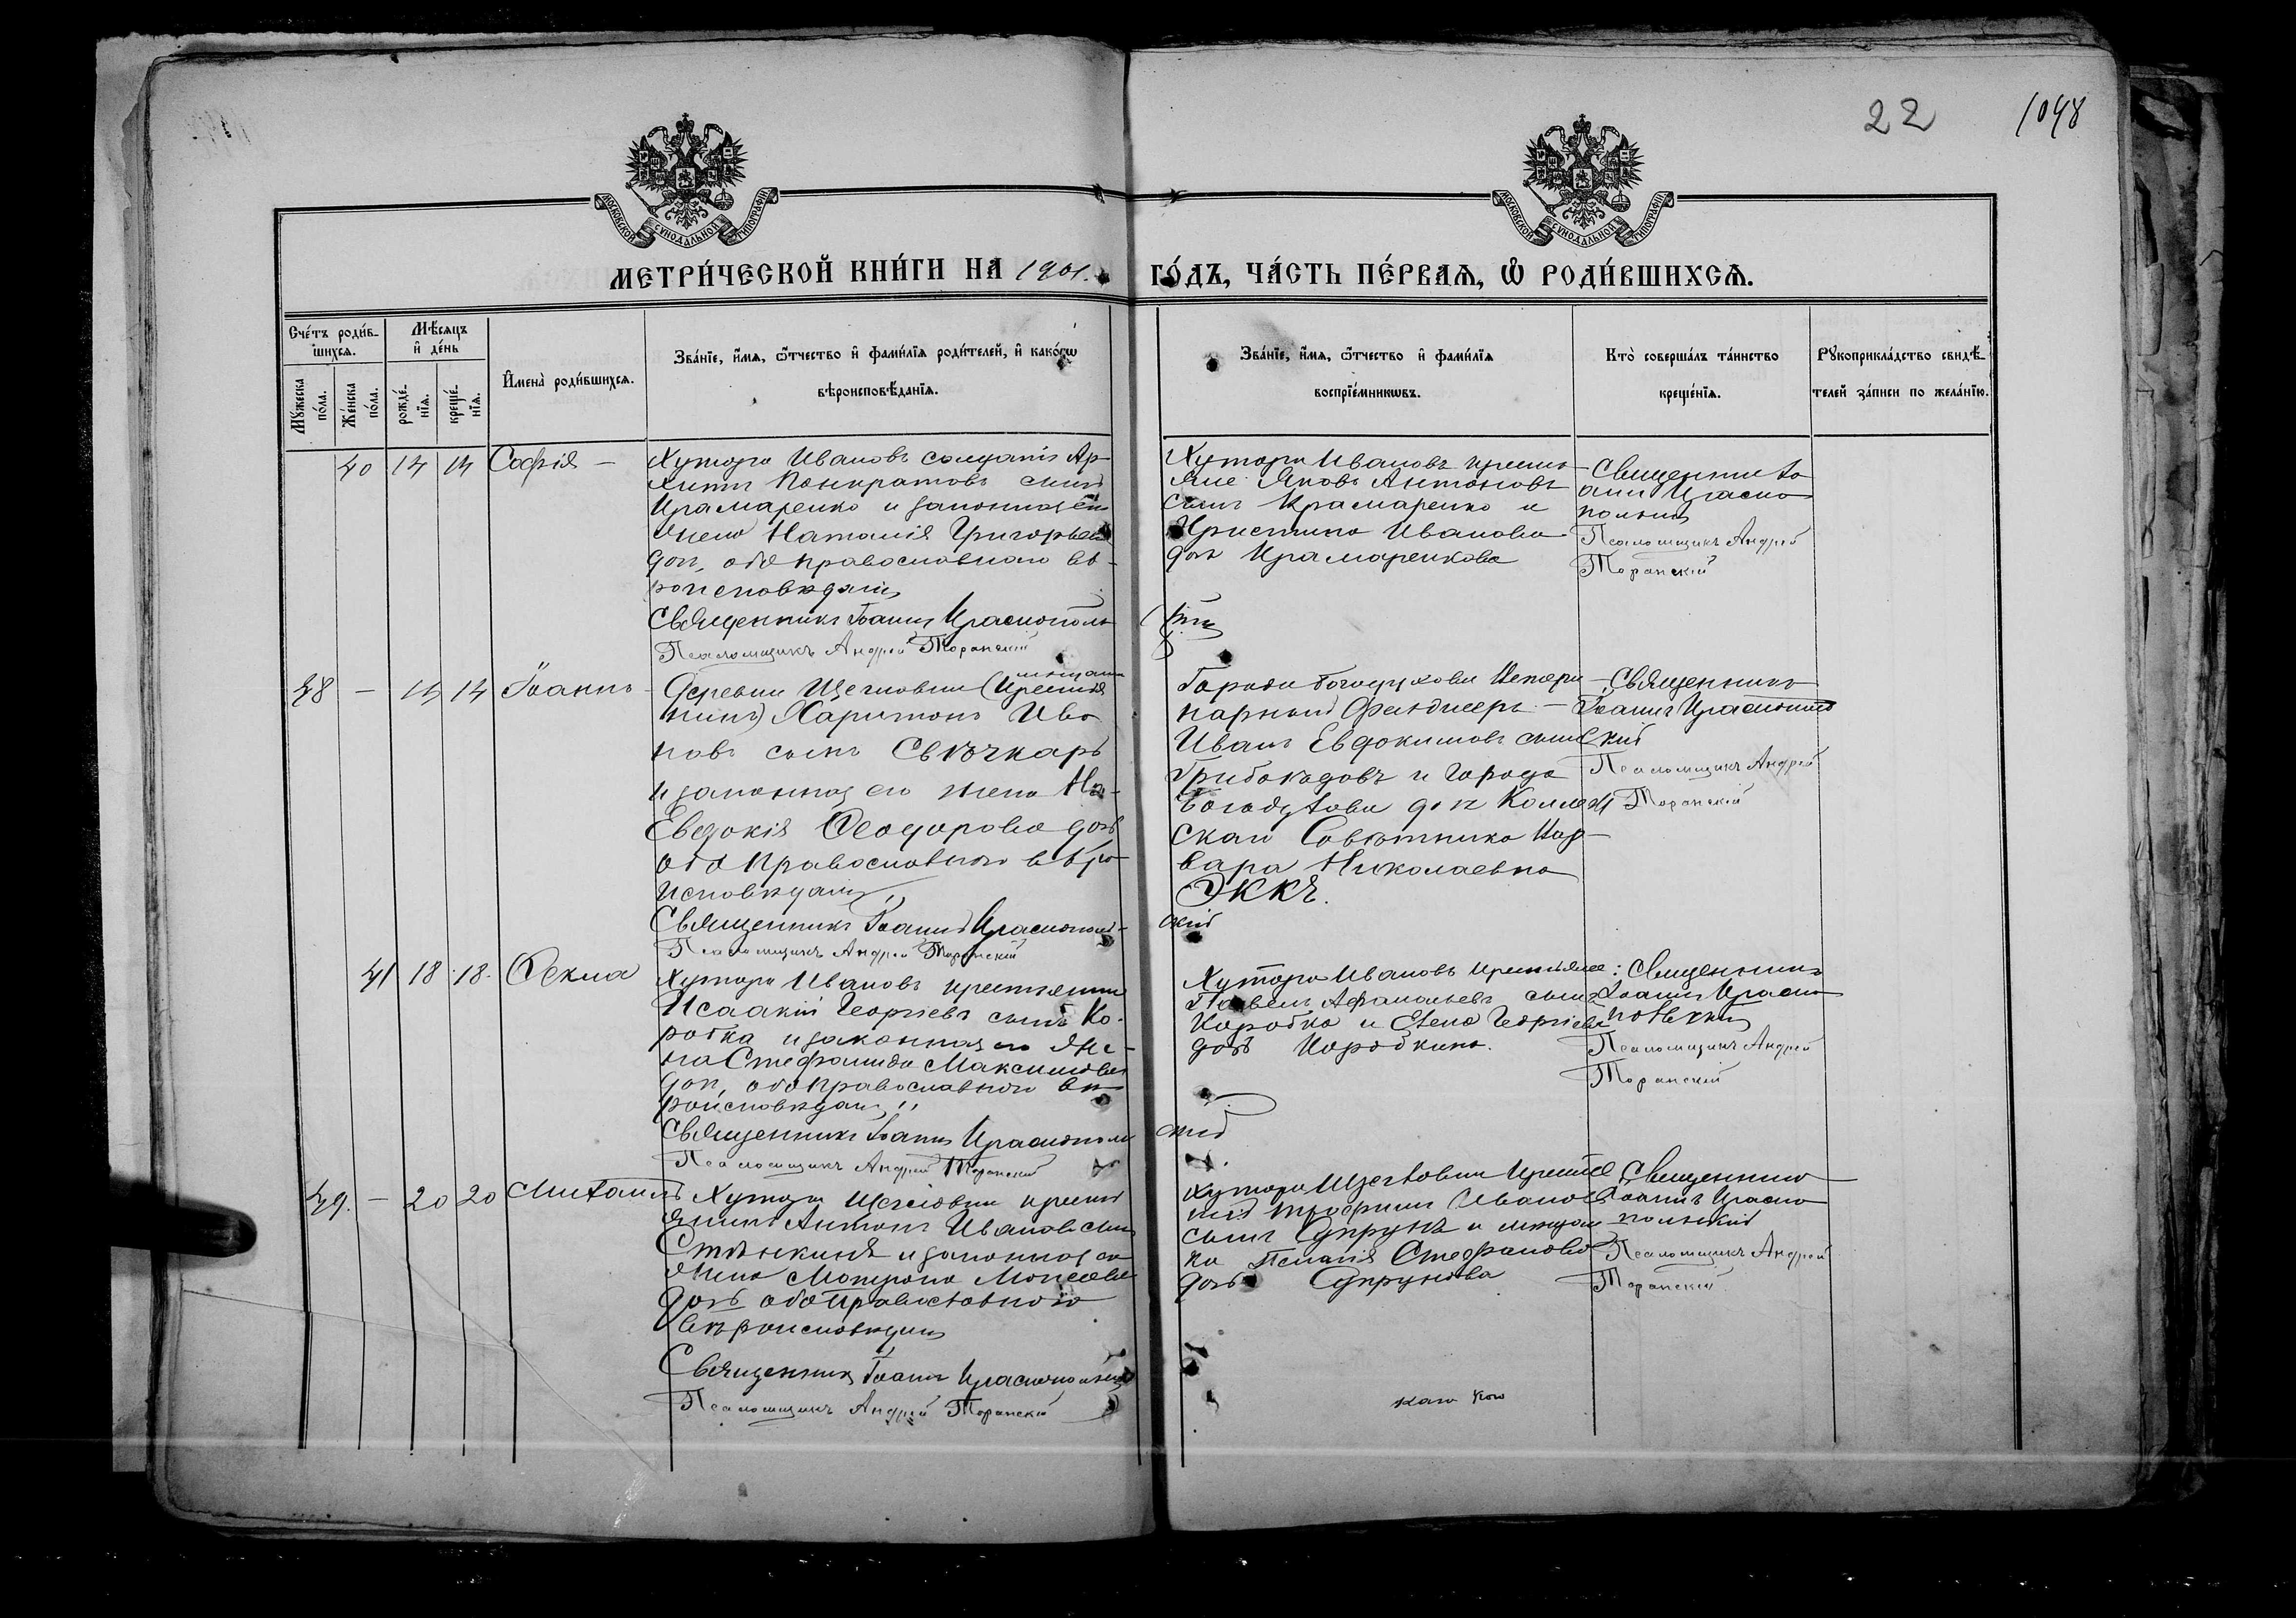 22 1048
МОСКОВСКОЙ СУНОДАЛЬНОЙ ТИПОГРАФІИ
МОСКОВСКОЙ СУНОДАЛЬНОЙ ТИПОГРАФІИ
МЕТРИ́ЧЕСКОЙ КНИ́ГИ НА 1901. ГО́ДЪ, ЧА́СТЬ ПЕ́РВАѦ, Ѡ҆ РОДИ́ВШИХСѦ.
Сче́тъ роди́в-
шихся.
Мѣ́сяцъ
и҆ де́нь
Мꙋ́жеска
по́ла.
Же́нска
по́ла.
рожде́-
нїѧ.
креще́-
нїѧ.
И҆мена̀ роди́вшихсѧ.
Зва́нїе, и҆́мѧ, ѻ҆́тчество и҆ фами́лїѧ роди́телей, и҆ како́гѡ
вѣроисповѣ́данїѧ.
Зва́нїе, и҆́мѧ, ѻ҆́тчество и҆ фами́лїѧ
воспрїе́мникѡвъ.
Кто̀ соверша́лъ та́инство
креще́нїѧ.
Рꙋкоприкла́дство свидѣ́-
телей за́писи по жела́нїю.
40 14 14 Софія —
Хутора Ивановъ
Панкратовъ сынъ
Крамаренко и законная его
жена Наталія Григорьева
доч, обо православнаго вѣ-
роисповѣданія
Священникъ Іоаннъ Краснополь
Псаломщикъ Андрей Торанскій
Хутора Ивановъ крестья
яне Яковъ Антоновъ
сынъ Крамаренко и
Христина Иванова
доч Крамаренкова
Псаломщикъ Андрей
Торанскій
48 — 14 14 Іоаннъ
Деревни
Харитонъ Ива
новъ сынъ Свѣчкарь
и законная его жена
Евдокія Ѳеодорова дочь
обо православнаго вѣро
исповѣданія
Священникъ Іоаннъ
Псаломщикъ Андрей Торанскій
Города Богодухова Ветери
нарный Фельдшеръ —
Иванъ Евдокимовъ сынъ
Грибоѣдовъ и Города
скаго Совѣтника Вар
вара Николаевна
ЭККЪ.
скій
Священникъ
Псаломщикъ Андрей
Торанскій
41 18 18. Ѳекла
Хутора Ивановъ крестьянинъ
Исаакій Георгіевъ сынъ Ко-
робка и законная его же-
на Стефанида Максимова
доч, обо православнаго вѣ
роисповѣданія
Священникъ Іоаннъ Краснополь
Псаломщикъ Андрей Торанскій
Хутора Ивановъ крестьяне:
Павелъ Афанасьевъ сынъ
Коробка и Елена Георгіева
дочь Коробкина.
скій
Священникъ
Іоаннъ Красно
польскій
Псаломщикъ Андрей
Торанскій
49. — 20 20 Михаилъ
Хутора
Антонъ Ивановъ сынъ
и законная его
жена Матрона Моисеева
дочь обо православнаго
вѣроисповѣданія
Священникъ Іоаннъ Краснопольскій
Псаломщикъ Андрей Торанскій
Хутора
Трофимъ Ивановъ
сынъ Супрунъ и мѣщан
ка Пелагія Стефанова
дочь Супрунова
Священникъ
Іоаннъ Красно
польскій
Псаломщикъ Андрей
Торанскій